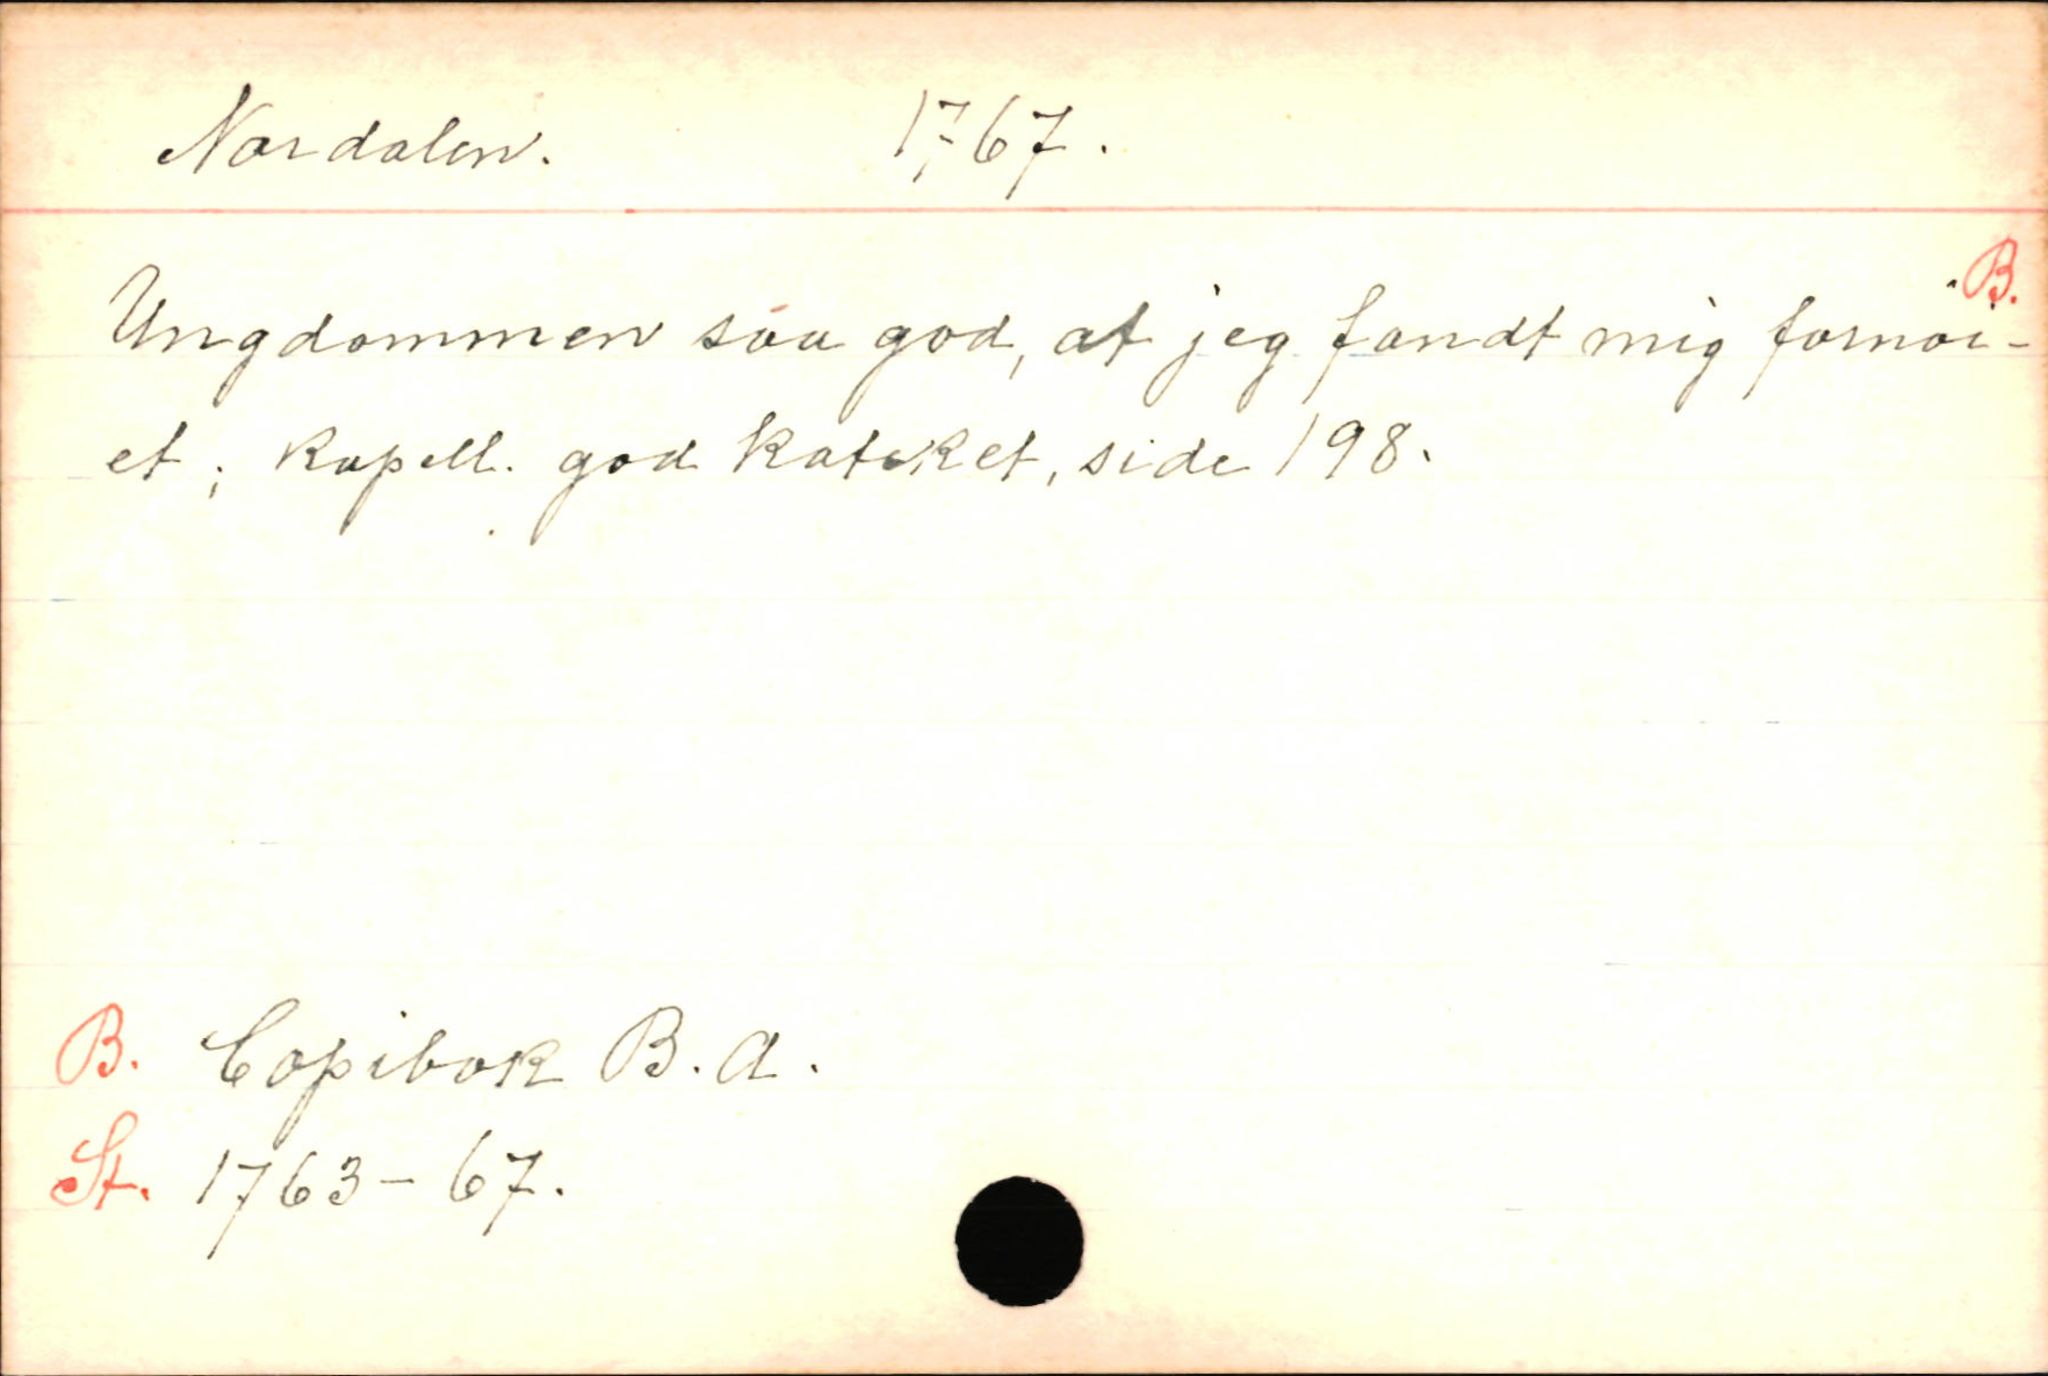 Nordalen. 1767.
B.
Ungdommen saa god, at jeg fandt mig fornöi-
et; kapell. god kateket, side 198.
B. Copibok B. A.
St. 1763-67.